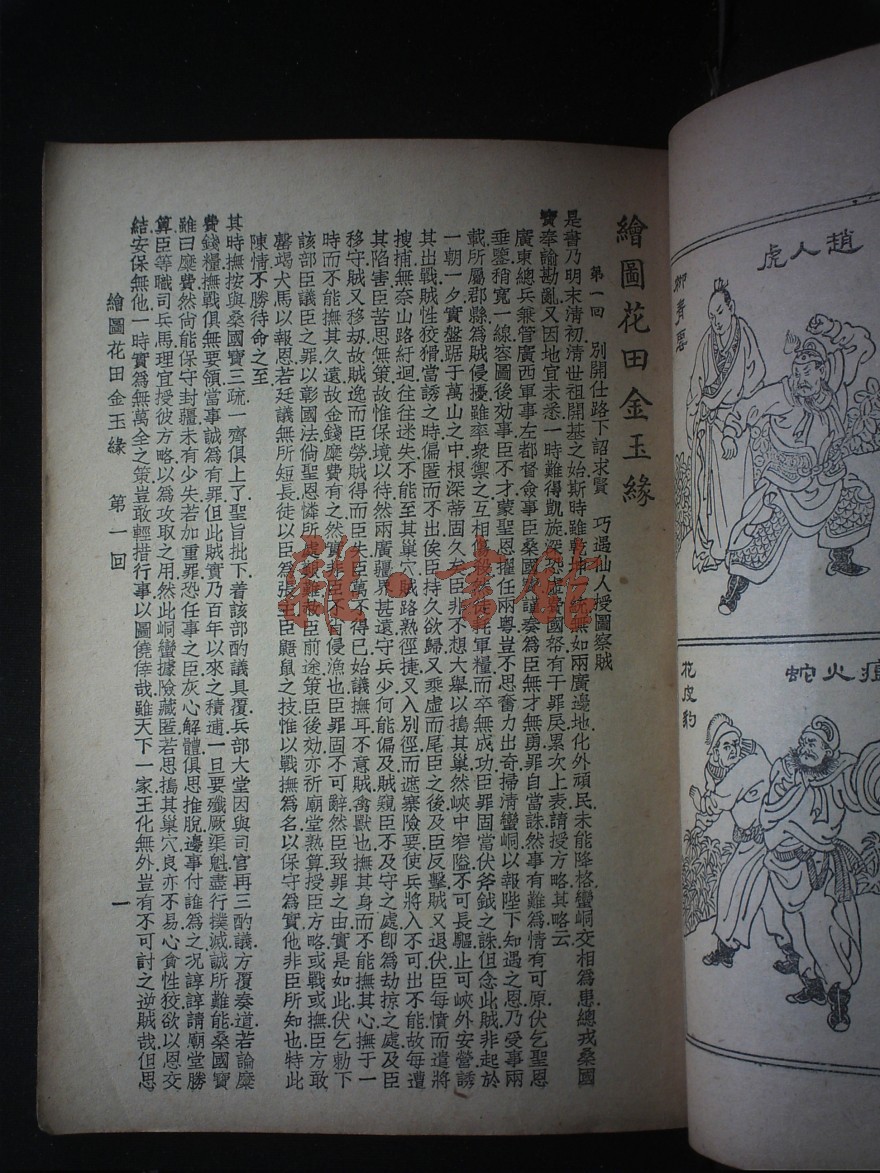 繪圖花田金玉緣
第一回 別開仕路下詔求賢 巧遇仙人授圖察賊
是書乃明末清初清世祖開基之始斯時雖乾坤一統無如兩廣邊地化外頑民未能降格蠻峒交相爲患總戎桑國
寶奉諭勘亂又因地宜未悉一時難得凱旋深恐虛費國帑有干罪戾累次上表請授方略其略云
廣東總兵兼管廣西軍事左都督僉事臣桑國寶謹奏爲臣無才無勇罪自當誅然事有難爲情有可原伏乞聖恩
垂鑒稍寬一線容圖後効事臣不才蒙聖恩擢任兩粤豈不思奮力出奇掃清蠻峒以報陛下知遇之恩乃受事兩
載所屬郡縣爲賊侵擾雖率衆禦之互相傷殺然徒耗軍糧而卒無成功臣罪固當伏斧鉞之誅但念此賊非起於
一朝一夕實盤踞于萬山之中根深蒂固久矣臣非不想大舉以搗其巢然峽中窄隘不可長驅止可峽外安營誘
其出戰賊性狡猾當誘之時偏匿而不出俟臣持久欲歸又乘虛而尾臣之後及臣反擊賊又退伏臣每憤而遣將
搜捕無奈山路紆迴往往迷失不能至其巢穴賊路熟徑捷又入別徑而遮塞險要使兵將入不可出不能故每遭
其陷害臣苦思無策故惟保境以待然兩廣疆界甚遠守兵少何能偏及賊窺臣不及守之處卽爲劫掠之處及臣
移守賊又移刼故賊逸而臣勞賊得而臣失臣萬不得已始議撫耳不意賊禽獸也撫其身而不能撫其心撫于一
時而不能撫其久遠故金錢糜費有之然實非臣不肖侵漁也臣罪固不可辭然臣致罪之由實是如此伏乞勅下
該部臣議臣之罪以彰國法倘聖恩憐所處艱難赦臣前途策臣後効亦祈廟堂熟算授臣方略或戰或撫臣方敢
罄竭犬馬以報恩若廷議無所短長徒以臣爲張主臣鼯鼠之技惟以戰撫爲名以保守爲實他非臣所知也特此
陳情不勝待命之至
其時撫按與桑國寶三疏一齊俱上了聖旨批下着該部酌議具覆兵部大堂因與司官再三酌議方覆奏道若論糜
費錢糧撫戰俱無要領當事誠爲有罪但此賊實乃百年以來之積逋一旦要殲厥渠魁盡行撲滅誠所難能桑國寶
雖曰糜費然尙能保守封疆未有少失若加重罪恐任事之臣灰心解體俱思推脫邊事付誰爲之况諄諄請廟堂勝
算臣等職司兵馬理宜授彼方略以爲攻取之用然此峒蠻據險藏匿若思搗其巢穴良亦不易心貪性狡欲以恩交
結安保無他一時實爲無萬全之策豈敢輕措行事以圖僥倖哉雖天下一家王化無外豈有不可討之逆賊哉但思
繪圖花田金玉緣 第一回 一
趙人虎
火蛇
花皮豹